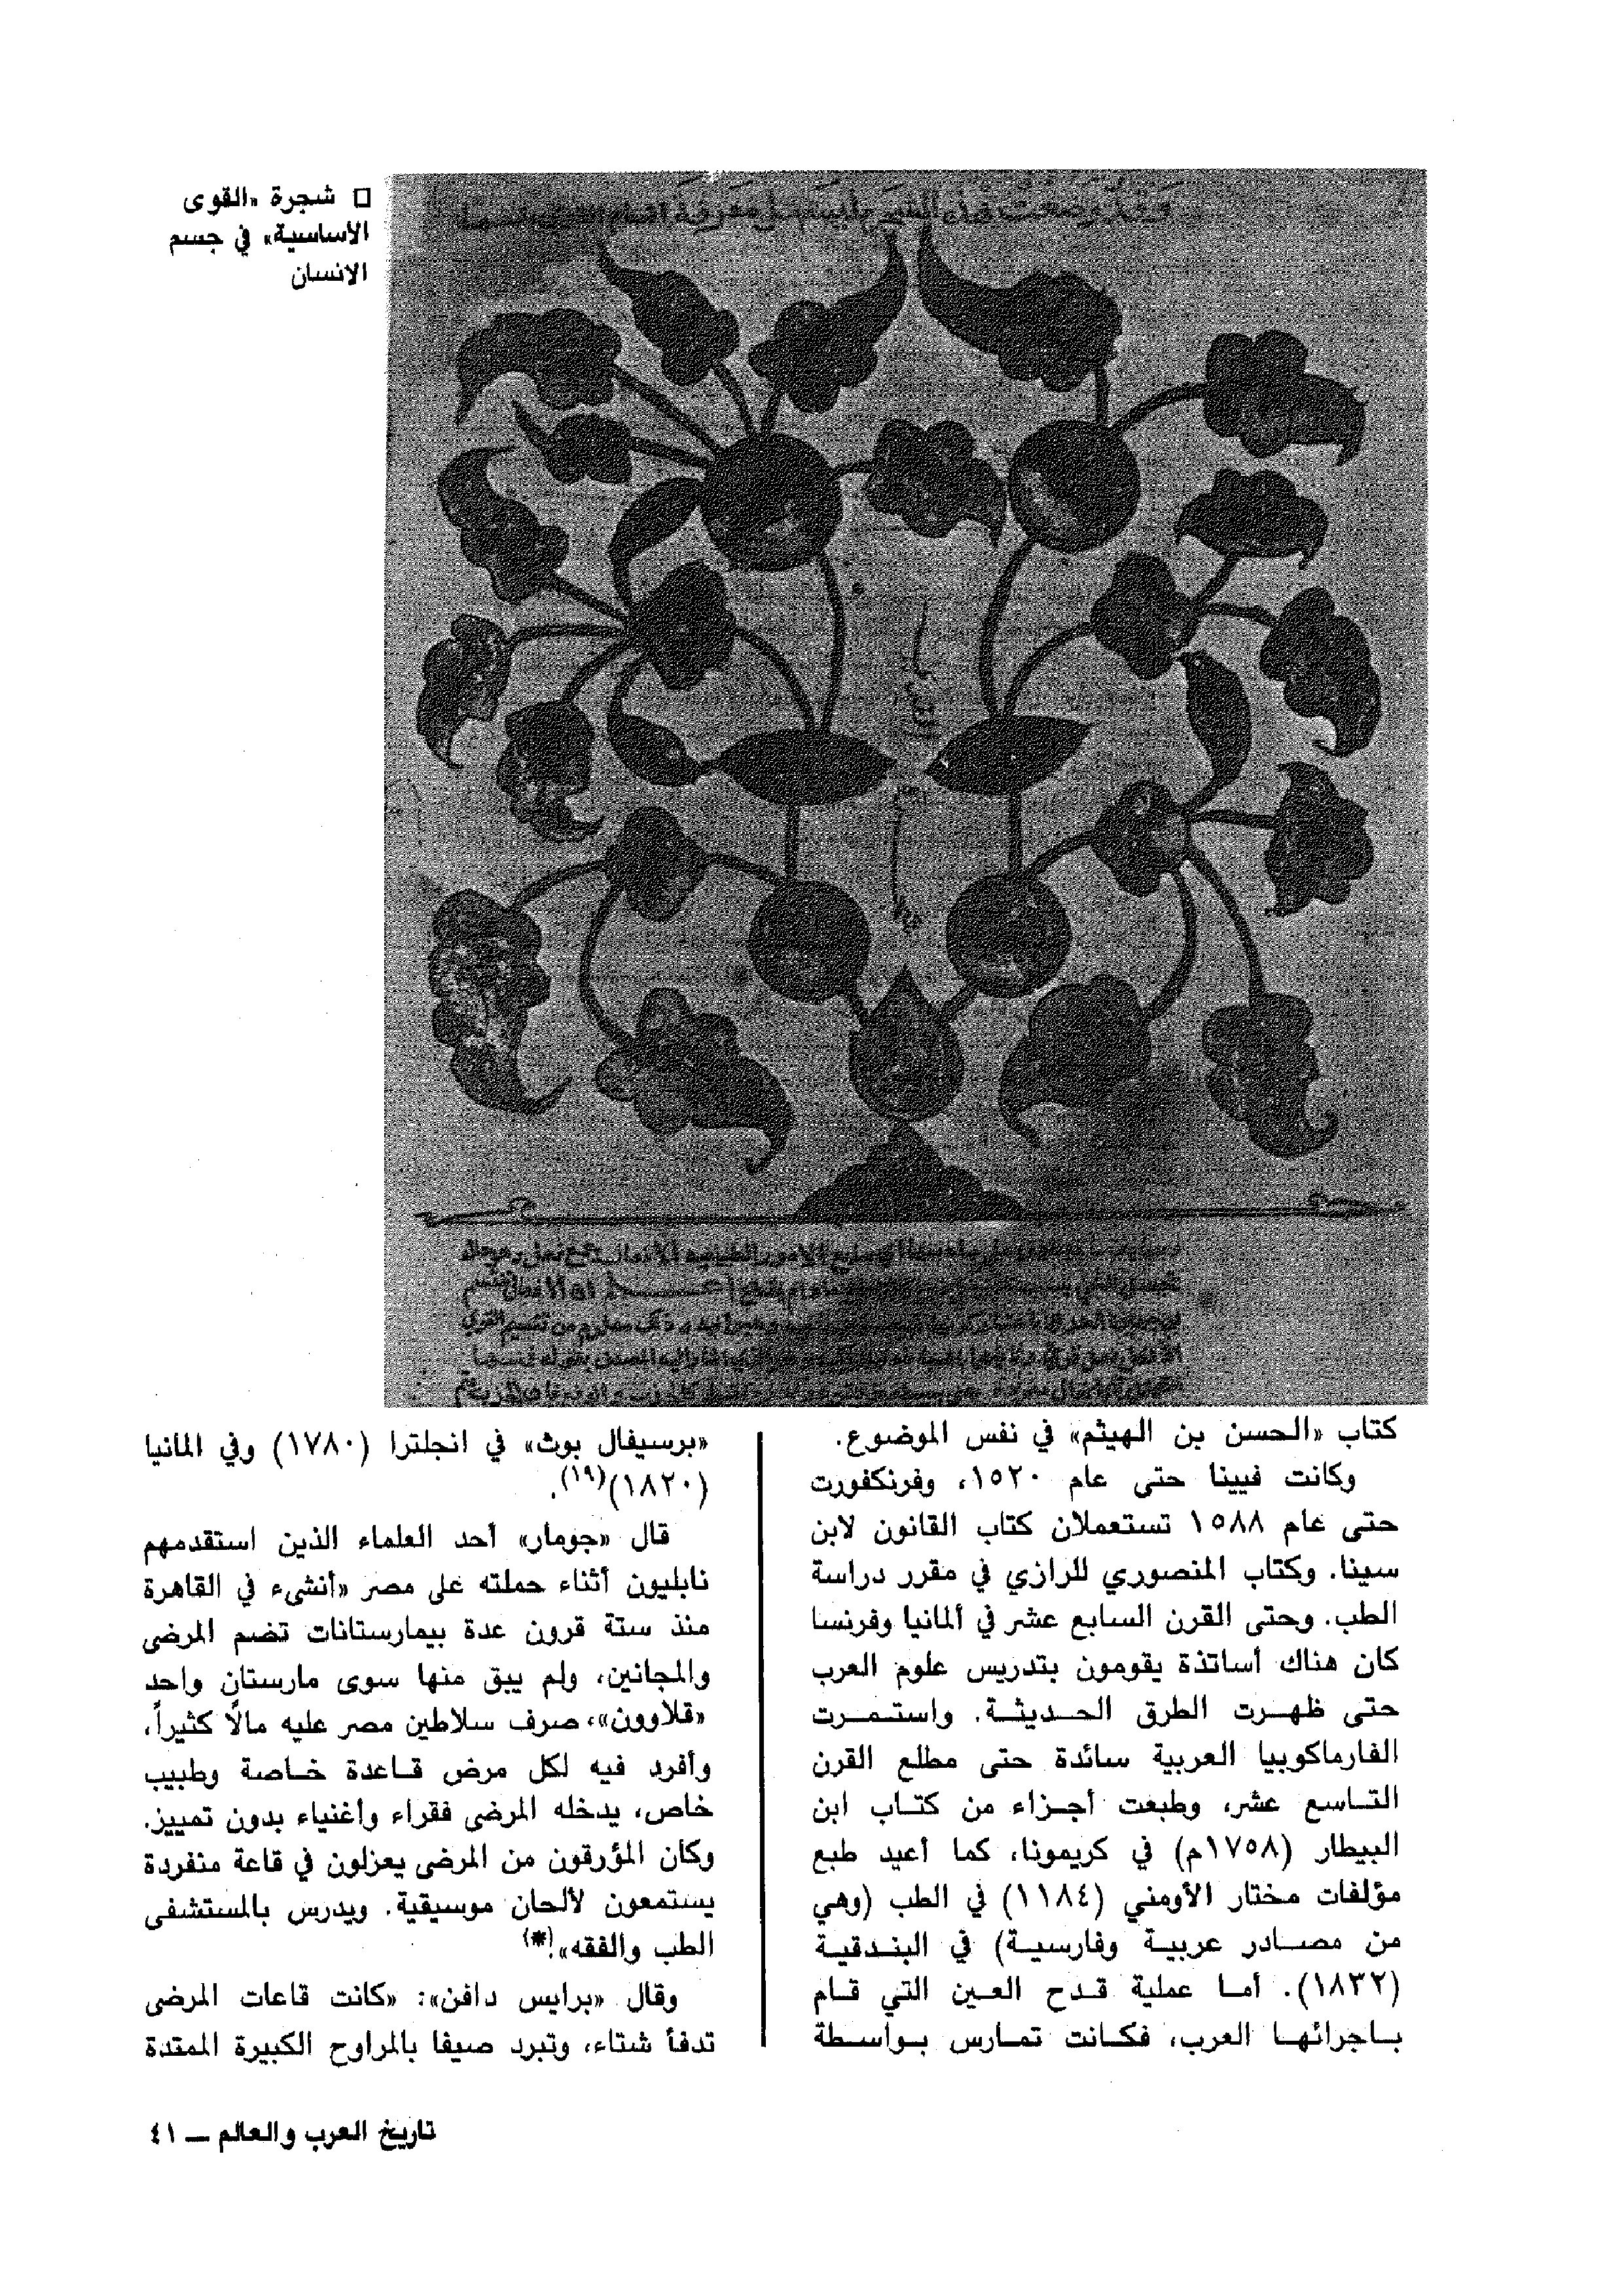 □ شجرة «القوى
الأساسية» في جسم
الانسان
كتاب «الحسن بن الهيثم» في نفس الموضوع.
وكانت فيينا حتى عام ١٥٢٠، وفرنكفورت
حتى عام ١٥٨٨ تستعملان كتاب القانون لابن
سينا. وكتاب المنصوري للرازي في مقرر دراسة
الطب. وحتى القرن السابع عشر في ألمانيا وفرنسا
كان هناك أساتذة يقومون بتدريس علوم العرب
حتى ظهرت الطرق الحديثة. واستمرت
الفارماكوبيا العربية سائدة حتى مطلع القرن
التاسع عشر، وطبعت أجزاء من كتاب ابن
البيطار (١٧٥٨م) في كريمونا، كما أعيد طبع
مؤلفات مختار الأومني (١١٨٤) في الطب (وهي
من مصادر عربية وفارسية) في البندقية
(١٨٣٢). أما عملية قدح العين التي قام
باجرائها العرب، فكانت تمارس بواسطة
«برسيفال بوث» في انجلترا (١٧٨٠) وفي المانيا
(١٨٢٠)(١٩).
قال «جومار» أحد العلماء الذين استقدمهم
نابليون أثناء حملته على مصر «أنشىء في القاهرة
منذ ستة قرون عدة بيمارستانات تضم المرضى
والمجانين، ولم يبق منها سوى مارستان واحد
«قلاوون»، صرف سلاطين مصر عليه مالاً كثيراً،
وأفرد فيه لكل مرض قاعدة خاصة وطبيب
خاص، يدخله المرضى فقراء وأغنياء بدون تمييز.
وكان المؤرقون من المرضى يعزلون في قاعة منفردة
يستمعون لألحان موسيقية. ويدرس بالمستشفى
الطب والفقه».(*)
وقال «برايس دافن»: «كانت قاعات المرضى
تدفأ شتاء، وتبرد صيفا بالمراوح الكبيرة الممتدة
تاريخ العرب والعالم – ٤١